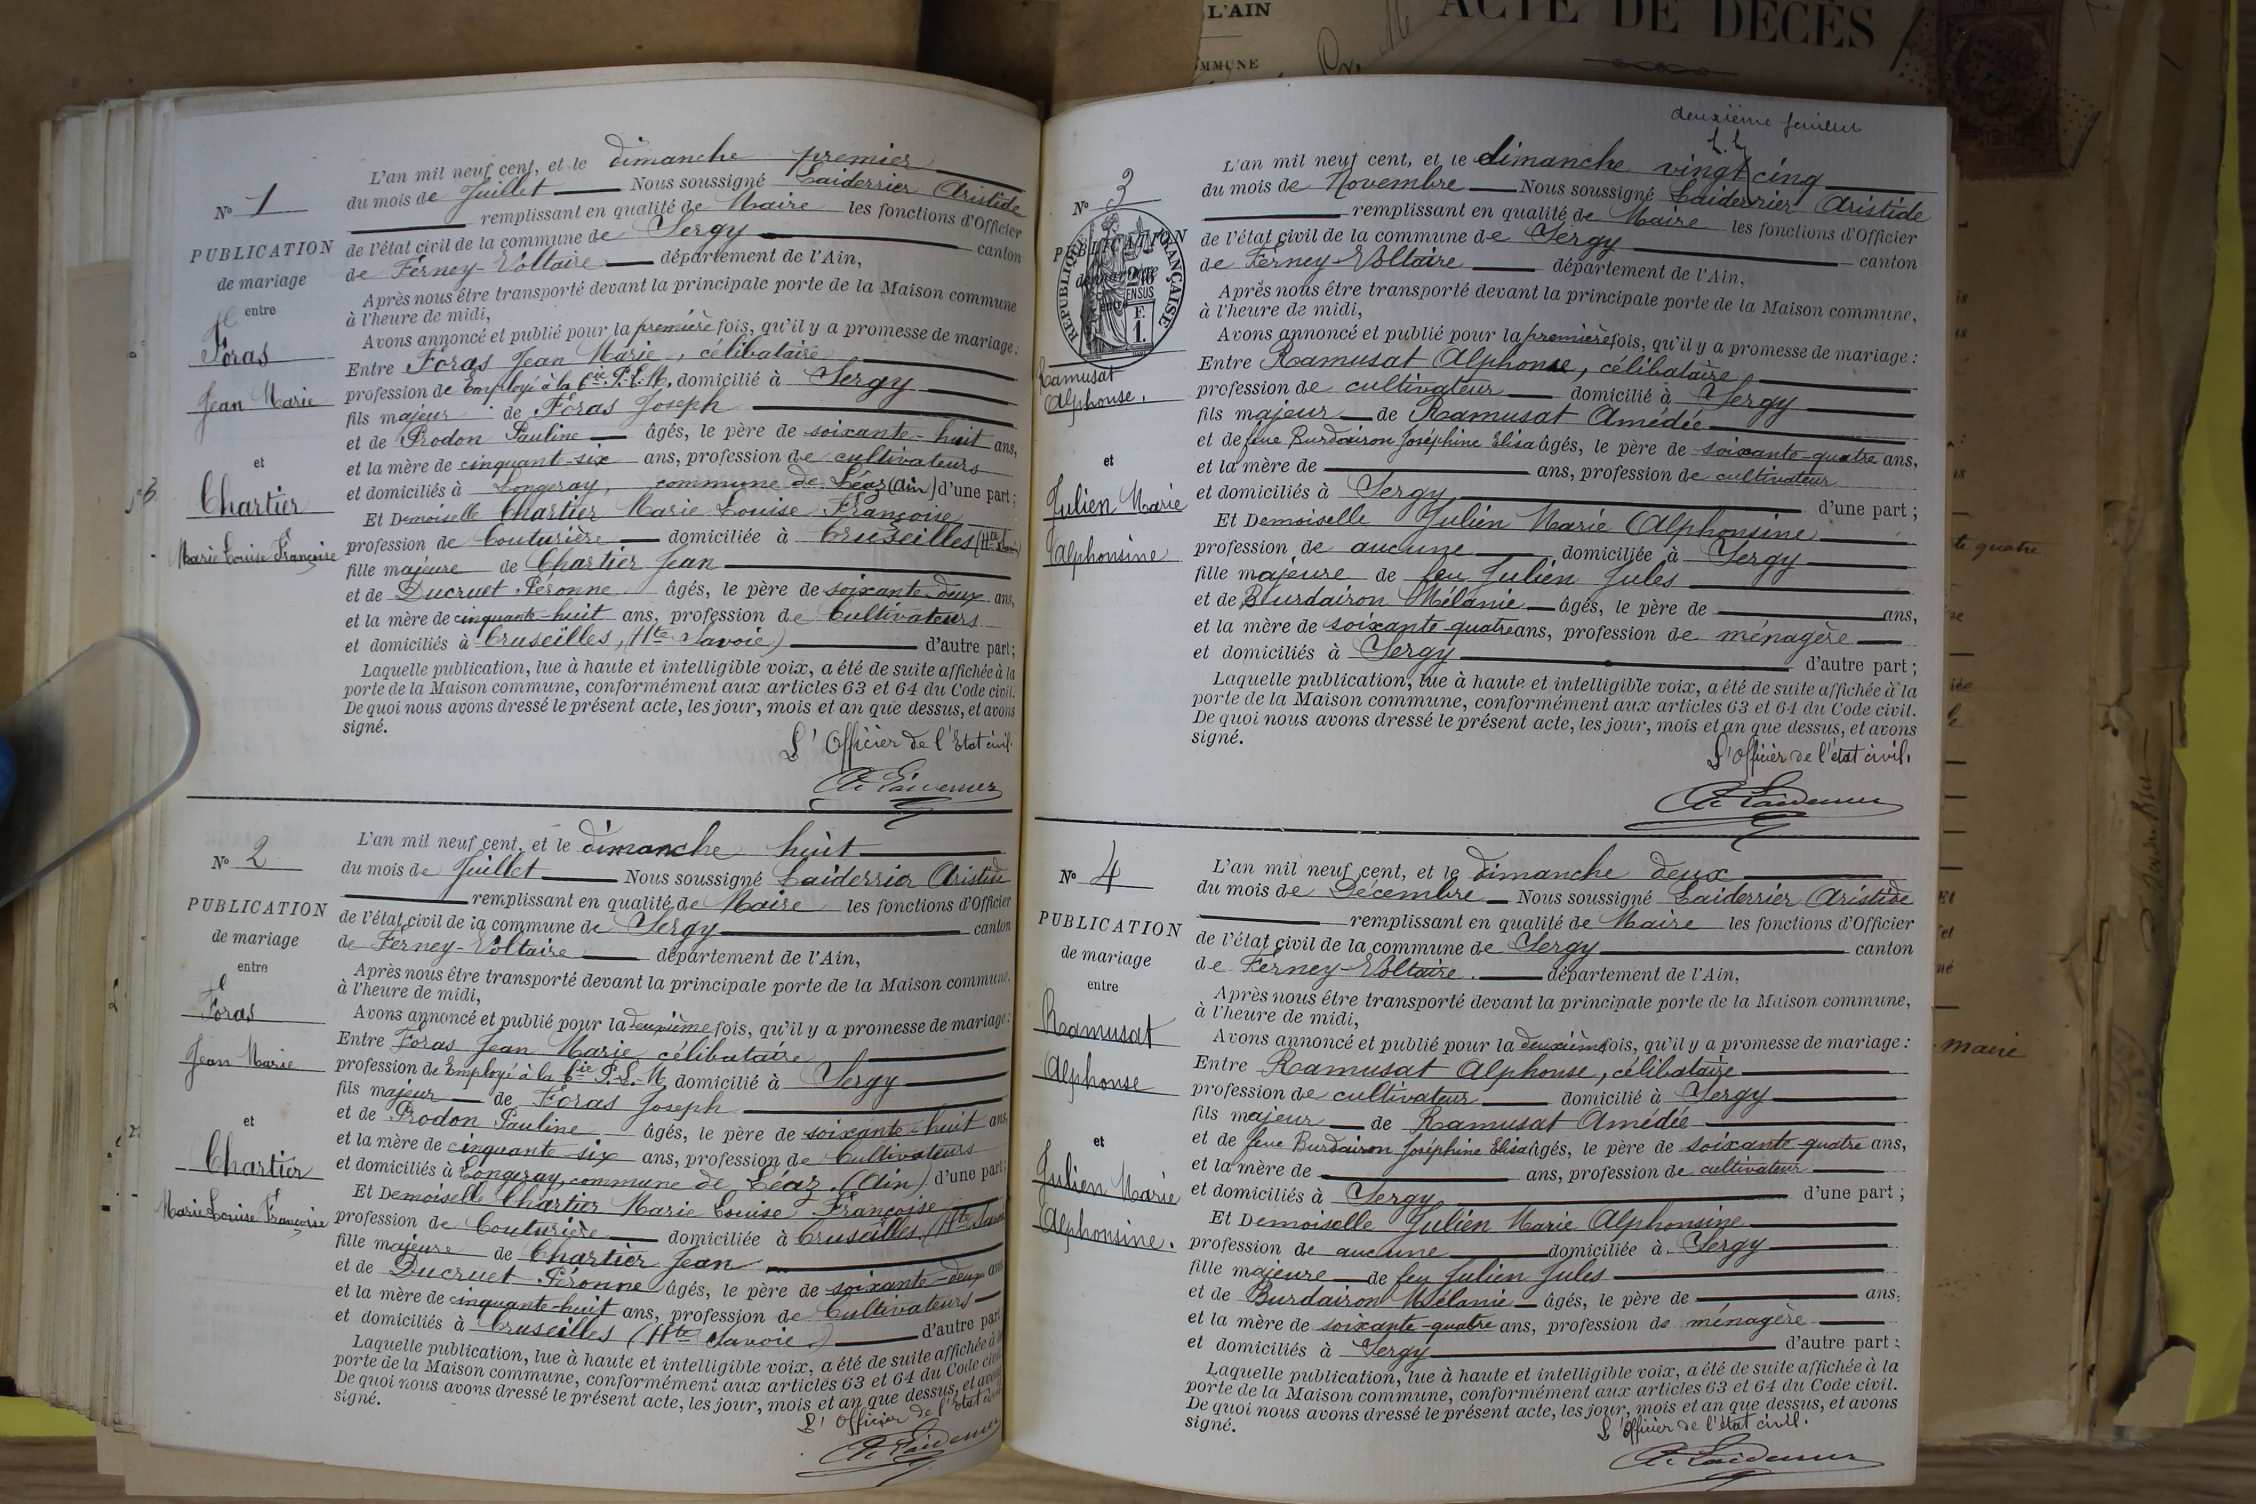 L'AIN
ACTE DE DÉCÈS
MMUNE
N° 1
PUBLICATION
de mariage
entre
Foras
Jean Marie
et
Chartier
Marie Louise Françoise
L'an mil neuf cent, et le dimanche premier
du mois de Juillet Nous soussigné Laiderrier Aristide
remplissant en qualité de Maire les fonctions d'Officier
de l'état civil de la commune de Sergy canton
de Ferney-Voltaire département de l'Ain,
Après nous être transporté devant la principale porte de la Maison commune
à l'heure de midi,
Avons annoncé et publié pour la première fois, qu'il y a promesse de mariage :
Entre Foras Jean Marie, célibataire
profession de Employé à la Cie P.L.M. domicilié à Sergy
fils majeur de Foras Joseph
et de Prodon Pauline âgés, le père de soixante-huit ans,
et la mère de cinquante-six ans, profession de cultivateurs
et domiciliés à Longeray, commune de Léaz (Ain) d'une part ;
Et Demoiselle Chartier Marie Louise Françoise
profession de Couturière domiciliée à Cruseilles (Hte Savoie)
fille majeure de Chartier Jean
et de Ducruet Péronne âgés, le père de soixante-deux ans,
et la mère de cinquante-huit ans, profession de Cultivateurs
et domiciliés à Cruseilles, (Hte Savoie) d'autre part ;
Laquelle publication, lue à haute et intelligible voix, a été de suite affichée à la
porte de la Maison commune, conformément aux articles 63 et 64 du Code civil.
De quoi nous avons dressé le présent acte, les jour, mois et an que dessus, et avons
signé.
L'Officier de l'Etat civil.
N° 2
PUBLICATION
de mariage
entre
Foras
Jean Marie
et
Chartier
Marie Louise Françoise
L'an mil neuf cent, et le dimanche huit
du mois de Juillet Nous soussigné Laiderrier Aristide
remplissant en qualité de Maire les fonctions d'Officier
de l'état civil de la commune de Sergy canton
de Ferney-Voltaire département de l'Ain,
Après nous être transporté devant la principale porte de la Maison commune,
à l'heure de midi,
Avons annoncé et publié pour la deuxième fois, qu'il y a promesse de mariage :
Entre Foras Jean Marie, célibataire
profession de Employé à la Cie P.L.M. domicilié à Sergy
fils majeur de Foras Joseph
et de Prodon Pauline âgés, le père de soixante-huit ans,
et la mère de cinquante-six ans, profession de Cultivateurs
et domiciliés à Longeray, commune de Léaz (Ain) d'une part ;
Et Demoiselle Chartier Marie Louise Françoise
profession de Couturière domiciliée à Cruseilles (Hte Savoie
fille majeure de Chartier Jean
et de Ducruet Péronne âgés, le père de soixante-deux ans
et la mère de cinquante-huit ans, profession de Cultivateurs
et domiciliés à Cruseilles (Hte Savoie) d'autre part
Laquelle publication, lue à haute et intelligible voix, a été de suite affichée à la
porte de la Maison commune, conformément aux articles 63 et 64 du Code civil
De quoi nous avons dressé le présent acte, les jour, mois et an que dessus, et avons
signé.
L'Officier de l'état civil
deuxième feuillet
N° 3
PUBLICATION
de mariage
entre
RÉPUBLIQUE FRANÇAISE
2/10
EN SUS
F.
1.
Ramusat
Alphonse.
et
Julien Marie
Alphonsine
L'an mil neuf cent, et le dimanche vingt cinq
du mois de Novembre Nous soussigné Laiderrier Aristide
remplissant en qualité de Maire les fonctions d'Officier
de l'état civil de la commune de Sergy canton
de Ferney-Voltaire département de l'Ain,
Après nous être transporté devant la principale porte de la Maison commune,
à l'heure de midi,
Avons annoncé et publié pour la première fois, qu'il y a promesse de mariage :
Entre Ramusat Alphonse, célibataire,
profession de cultivateur domicilié à Sergy
fils majeur de Ramusat Amédée
et de feue Burdairon Joséphine Elisa âgés, le père de soixante-quatre ans,
et la mère de ans, profession de cultivateur
et domiciliés à Sergy d'une part ;
Et Demoiselle Julien Marie Alphonsine
profession de aucune domiciliée à Sergy
fille majeure de feu Julien Jules
et de Burdairon Mélanie âgés, le père de ans,
et la mère de soixante-quatre ans, profession de ménagère
et domiciliés à Sergy d'autre part ;
Laquelle publication, lue à haute et intelligible voix, a été de suite affichée à la
porte de la Maison commune, conformément aux articles 63 et 64 du Code civil.
De quoi nous avons dressé le présent acte, les jour, mois et an que dessus, et avons
signé.
L'Officier de l'état civil.
N° 4
PUBLICATION
de mariage
entre
Ramusat
Alphonse
et
Julien Marie
Alphonsine.
L'an mil neuf cent, et le dimanche deux
du mois de Décembre Nous soussigné Laiderrier Aristide
remplissant en qualité de Maire les fonctions d'Officier
de l'état civil de la commune de Sergy canton
de Ferney-Voltaire. département de l'Ain,
Après nous être transporté devant la principale porte de la Maison commune,
à l'heure de midi,
Avons annoncé et publié pour la deuxième fois, qu'il y a promesse de mariage :
Entre Ramusat Alphonse, célibataire
profession de cultivateur domicilié à Sergy
fils majeur de Ramusat Amédée
et de feue Burdairon Joséphine Elisa âgés, le père de soixante-quatre ans,
et la mère de ans, profession de cultivateur
et domiciliés à Sergy d'une part ;
Et Demoiselle Julien Marie Alphonsine
profession de aucune domiciliée à Sergy
fille majeure de feu Julien Jules
et de Burdairon Mélanie âgés, le père de ans,
et la mère de soixante-quatre ans, profession de ménagère
et domiciliés à Sergy d'autre part ;
Laquelle publication, lue à haute et intelligible voix, a été de suite affichée à la
porte de la Maison commune, conformément aux articles 63 et 64 du Code civil.
De quoi nous avons dressé le présent acte, les jour, mois et an que dessus, et avons
signé.
L'Officier de l'état civil.
te quatre
maire